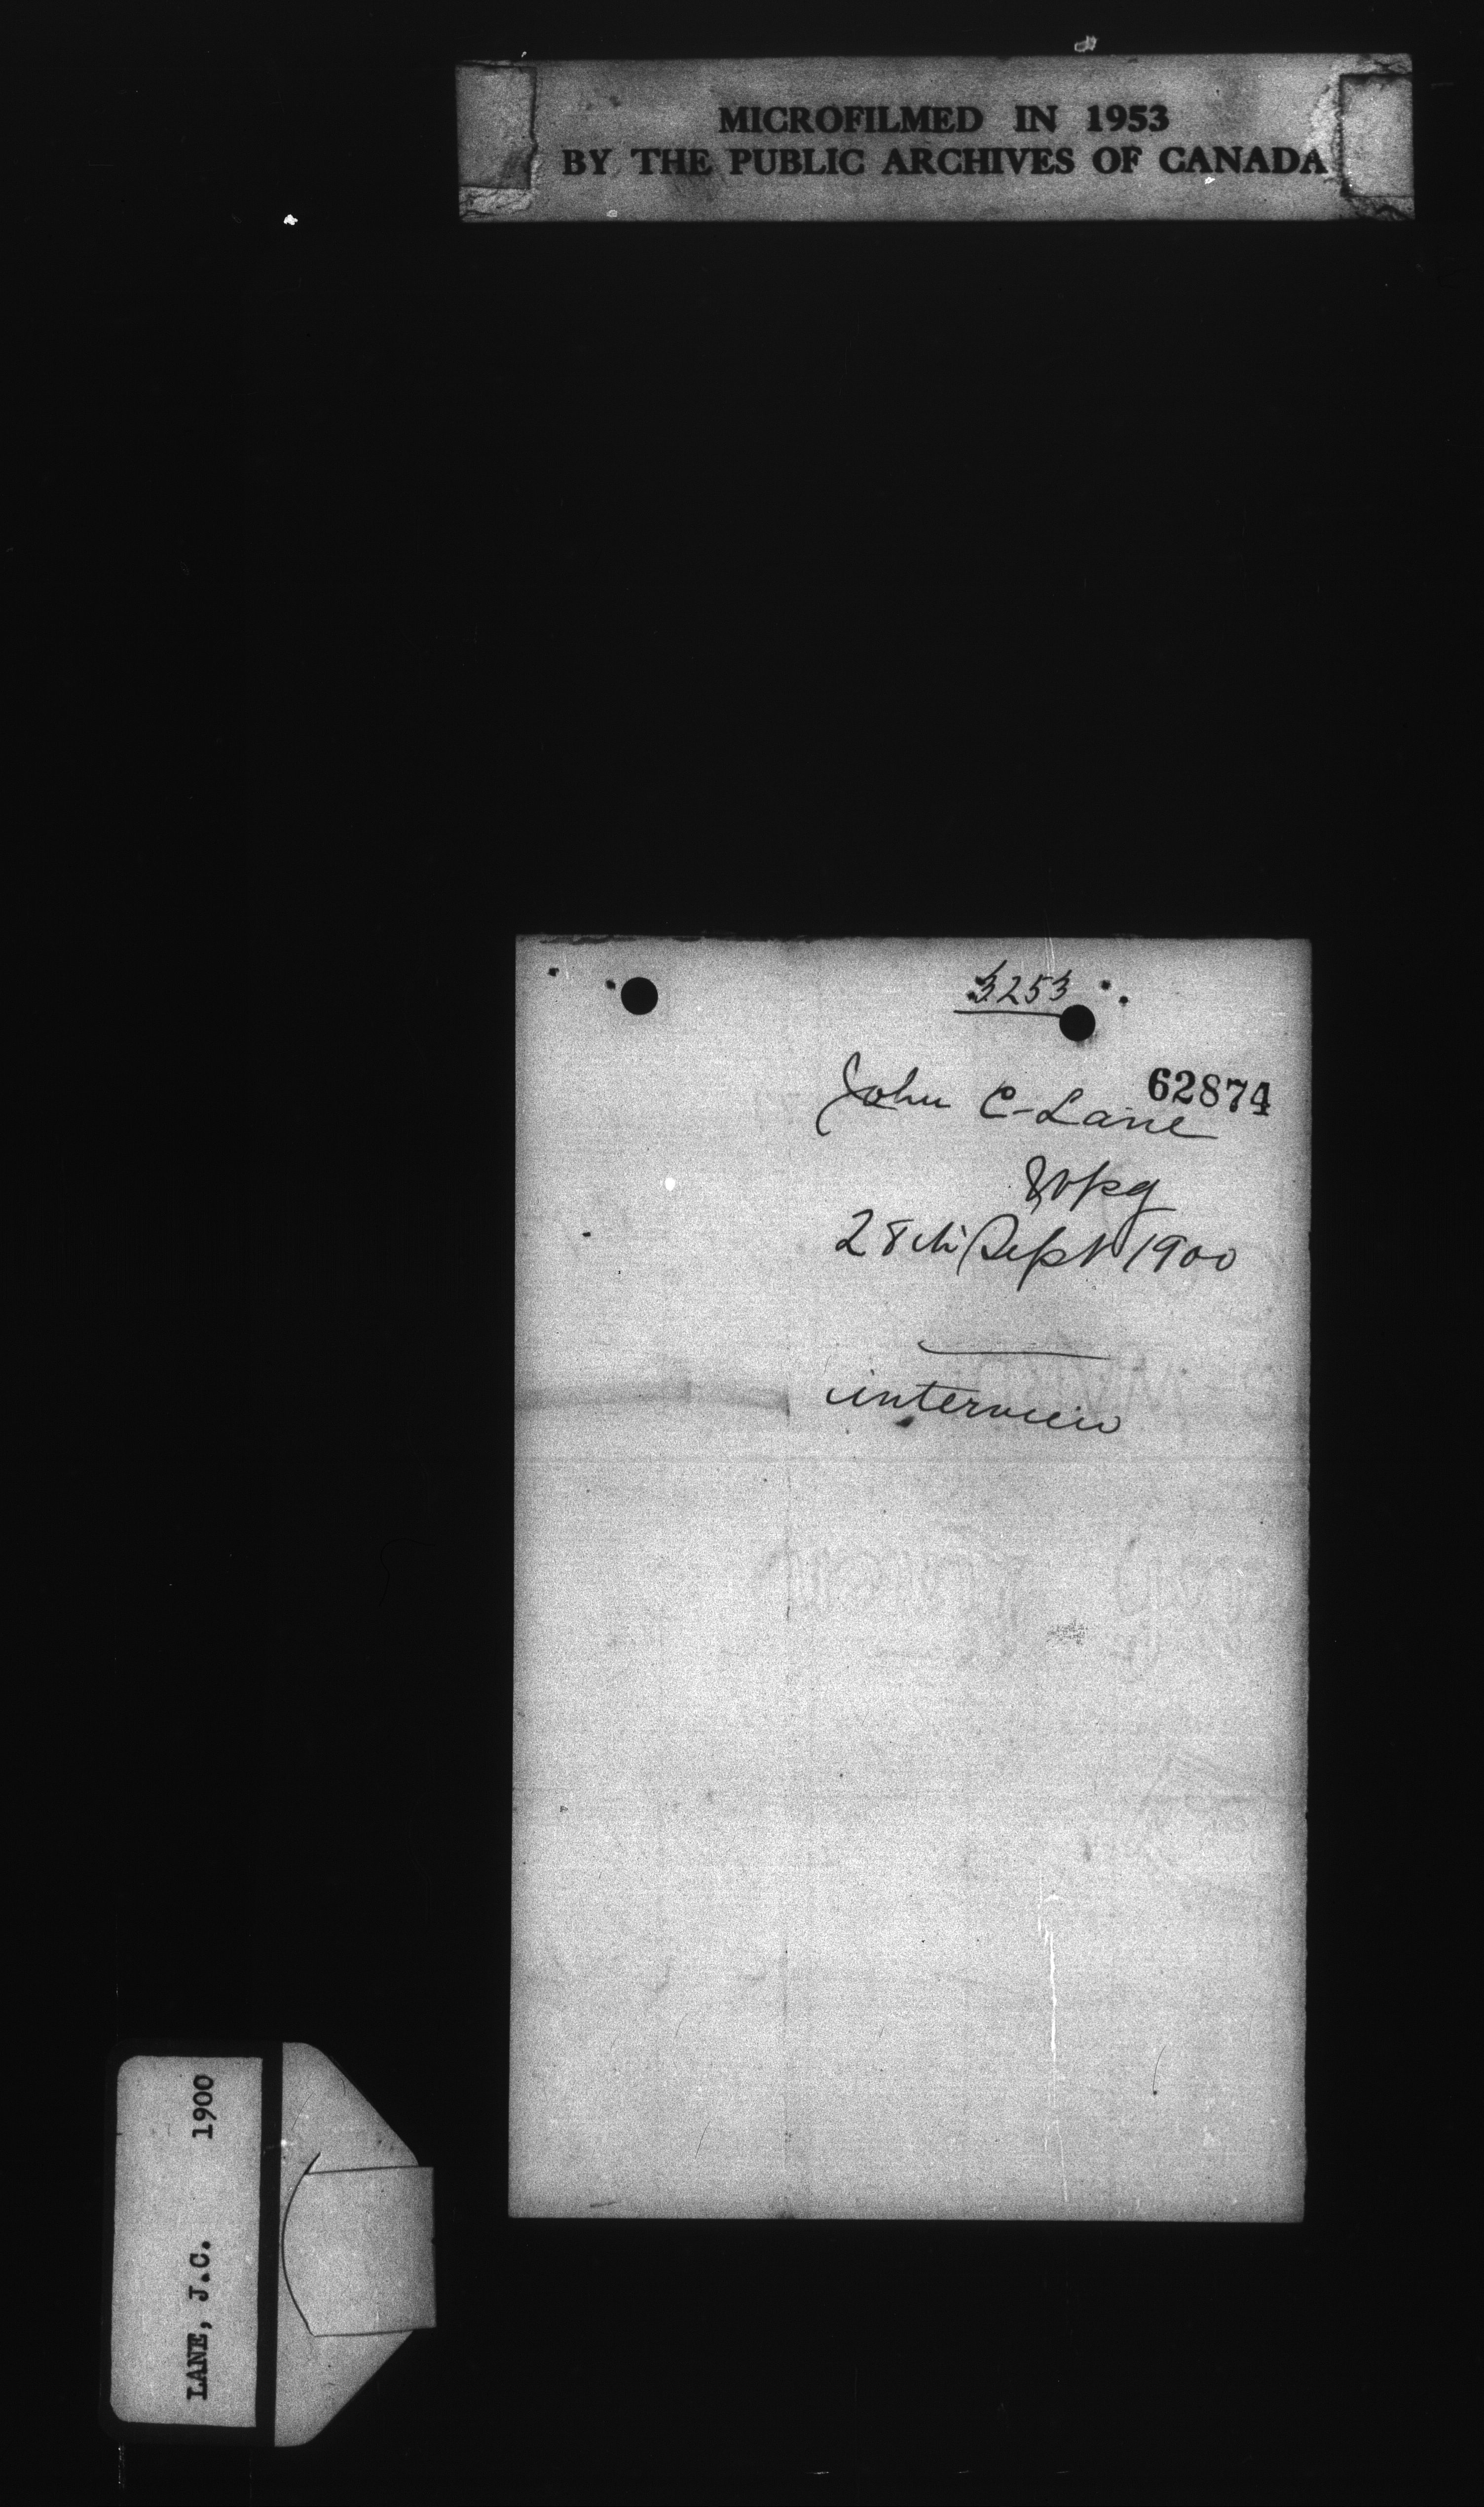 MICROFILMED IN 1953
BY THE PUBLIC ARCHIVES OF CANADA
3253
62874
John C-Lane
Wpg
28th Sept 1900
interview
LANE, J.C. 1900